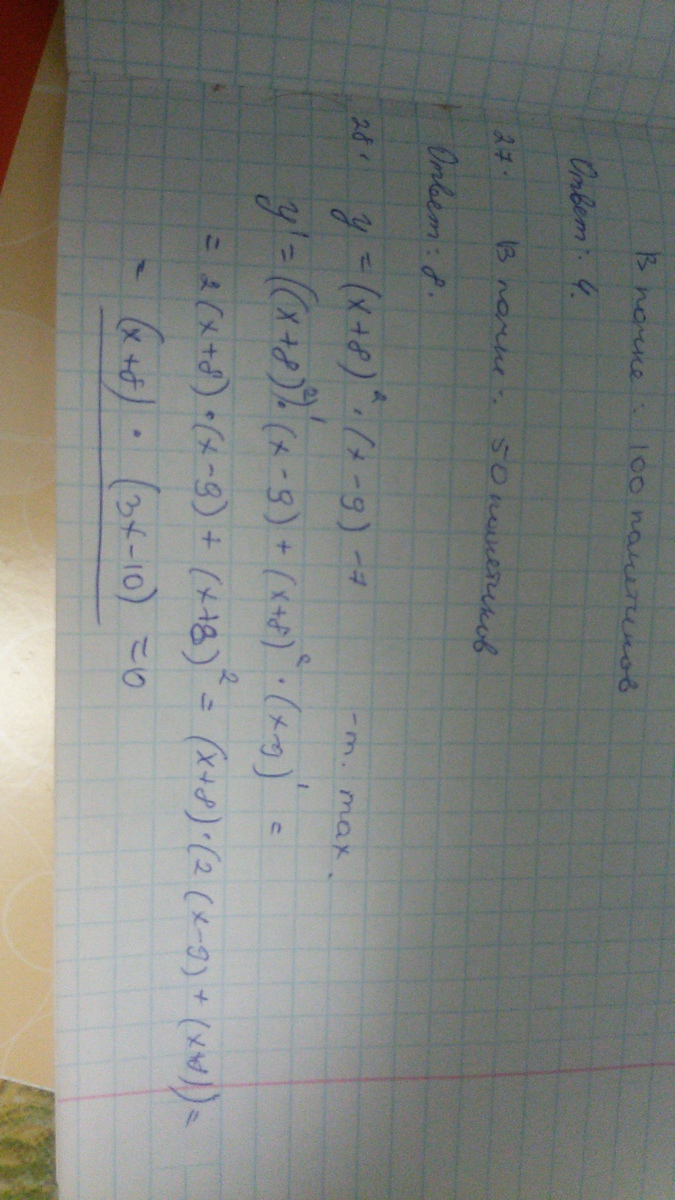 В пачке: 100 пакетиков
Ответ: 4.
27. В пачке: 50 пакетиков
Ответ: 8.
28. y = (x+8)² · (x-9) -7 -т. max.
y' = ((x+8)²)' · (x-9) + (x+8)² · (x-9)' =
= 2(x+8) · (x-9) + (x+8)² = (x+8) · (2(x-9) + (x+8)) =
= (x+8) · (3x-10) = 0